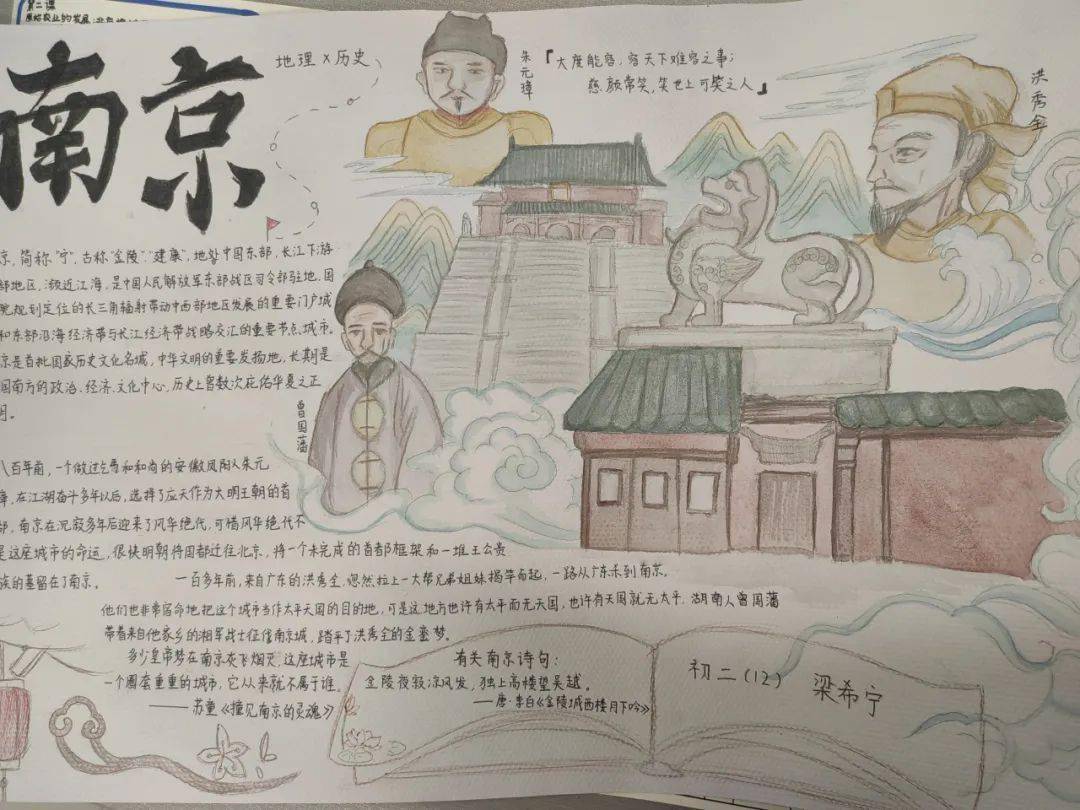 第二课
南京
地理×历史
朱元璋
「大度能容,容天下难容之事;
慈颜常笑,笑世上可笑之人」
洪秀全
京,简称"宁",古称"金陵""建康",地处中国东部,长江下游
部地区,濒近江海,是中国人民解放军东部战区司令部驻地,国
院规划定位的长三角辐射带动中西部地区发展的重要门户城
和东部沿海经济带与长江经济带战略交汇的重要节点城市。
京是首批国家历史文化名城,中华文明的重要发扬地,长期是
国南方的政治、经济、文化中心,历史上曾数次庇佑华夏之正
朔。
曾国藩
八百年前,一个做过乞丐和和尚的安徽凤阳人朱元
璋,在江湖奋斗多年以后,选择了应天作为大明王朝的首
都,南京在沉寂多年后迎来了风华绝代,可惜风华绝代不
是这座城市的命运,很快明朝将国都迁往北京,将一个未完成的首都框架和一堆王公贵
族的墓留在了南京。
一百多年前,来自广东的洪秀全,愤然拉上一大帮兄弟姐妹揭竿而起,一路从广东杀到南京。
他们也非常宿命地把这个城市当作太平天国的目的地,可是这地方也许有太平而无天国,也许有天国就无太平,湖南人曾国藩
带着来自他家乡的湘军战士征伐南京城,踏平了洪秀全的金銮梦。
多少皇帝梦在南京灰飞烟灭,这座城市是
一个圈套重重的城市,它从来就不属于谁。
——苏童《撞见南京的灵魂》
有关南京诗句:
金陵夜寂凉风发,独上高楼望吴越。
——唐·李白《金陵城西楼月下吟》
初二(12) 梁希宁